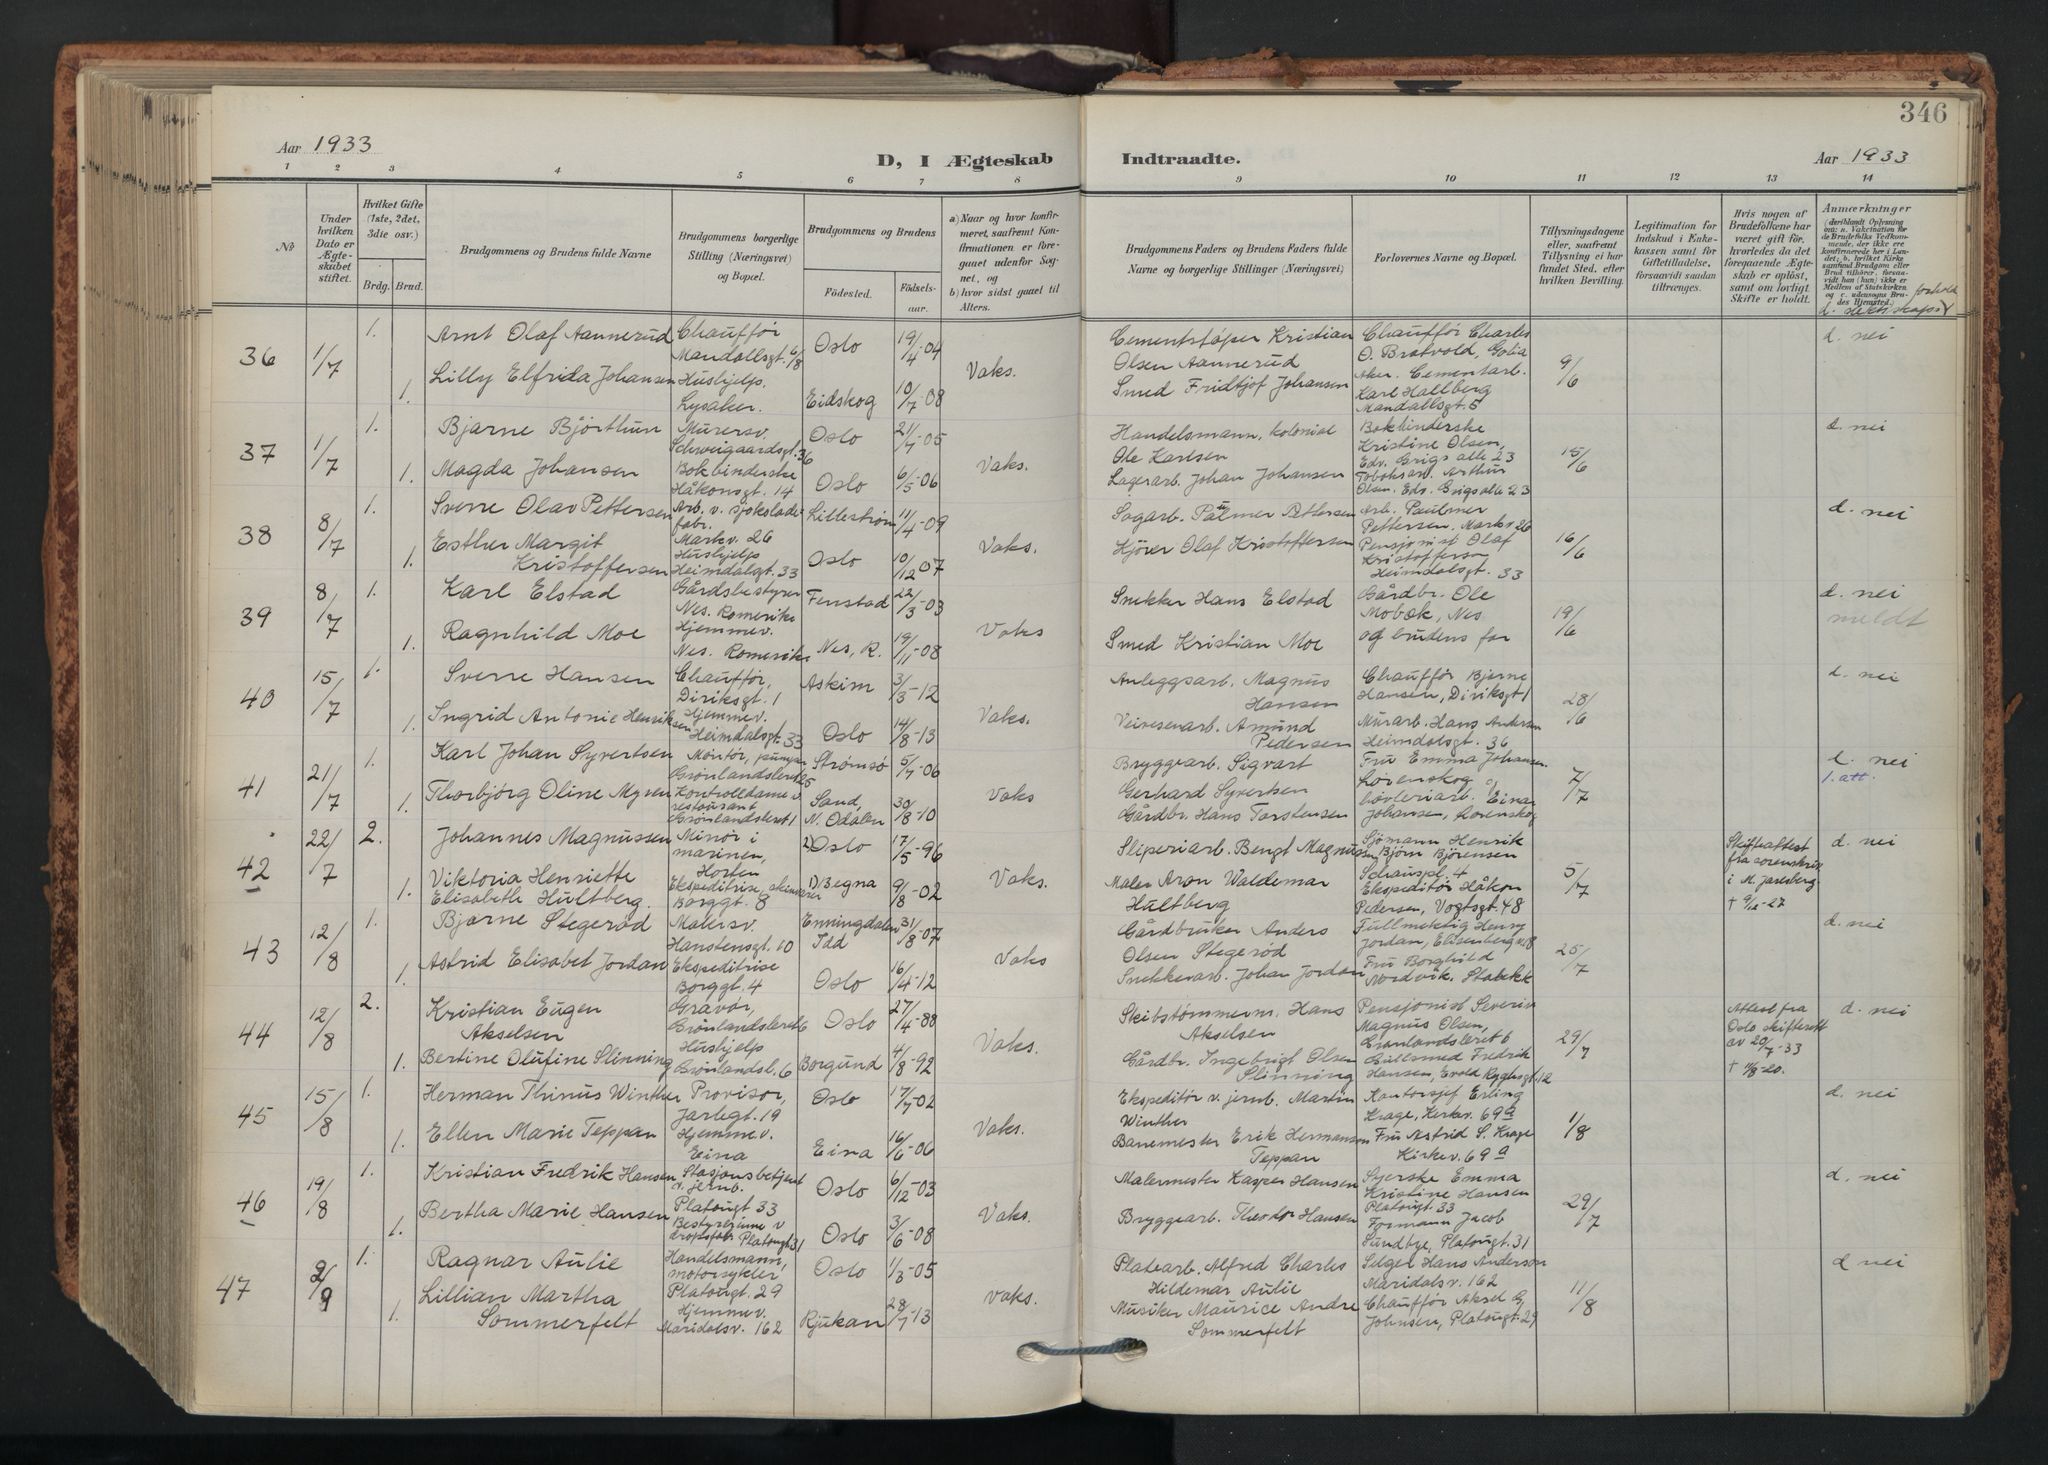 346
Aar 1933
D, I Ægteskab
Indtraadte.
Aar 1933
1 2 3 4 5 6 7 8
9 10 11 12 13 14
No
Under hvilken Dato er Ægteskabet stiftet.
Hvilket Gifte (1ste, 2det, 3die osv.)
Brdg. Brud.
Brudgommens og Brudens fulde Navne
Brudgommens borgerlige Stilling (Næringsvei) og Bopæl.
Brudgommens og Brudens
Fødested.
Fødselsaar.
a) Naar og hvor konfirmeret, saafremt Konfirmationen er foregaaet udenfor Sognet, og
b) hvor sidst gaaet til Alters.
Brudgommens Faders og Brudens Faders fulde Navne og borgerlige Stillinger (Næringsvei)
Forlovernes Navne og Bopæl.
Tillysningsdagene eller, saafremt Tillysning ei har fundet Sted, efter hvilken Bevilling.
Legitimation for Indskud i Enkekassen samt for Giftetilladelse, forsaavidt saadan tiltrænges.
Hvis nogen af Brudefolkene har været gift før, hvorledes da det foregaaende Ægteskab er opløst, samt om lovligt Skifte er holdt.
Anmærkninger
d. slektskapsforhold
36 1/7 1. Arnt Olaf Aannerud
Chauffør
Mandallsgt. 6/8
Oslo 19/4-04
1. Lilly Elfrida Johansen
Hushjelp,
Lysaker.
Eidskog 10/7-08
Vaks.
Cementstøper Kristian
Olsen Aannerud
Smed Fridtjof Johansen
Chauffør Charles
O. Bratvold,
Aker. Cementarb.
Karl Hallberg
Mandallsgt. 5
9/6
d. nei
37 1/7 1. Bjarne Bjørthun
Murersv.
Schweigaardsgt. 36
Oslo 21/7-05
1. Magda Johansen
Bokbinderske
Håkonsgt. 14
Oslo 6/5-06
Vaks.
Handelsmann, kolonial
Ole Karlsen
Lagerarb. Johan Johansen
Bokbinderske
Kristine Olsen,
Edv. Grigs alle 23
Tobaksarb. Arthur
Olsen. Edv. Grigs alle 23
15/6
d. nei
38 8/7 1. Sverre Olav Pettersen
Arb. v. sjokoladefabr.
Markv. 26
Lillestrøm 11/4-09
1. Esther Margit
Kristoffersen
Hushjelp
Heimdalsgt. 33
Oslo 10/12 07
Vaks.
Sagarb. Palmer Pettersen
Kjører Olaf Kristoffersen
Arb. Paulmer
Pettersen. Markv 26
Pensjonist Olaf
Kristoffersen
Heimdalsgt. 33
16/6
d. nei
39 8/7 1. Karl Elstad
Gårdsbestyrer
Nes. Romerike
Fenstad 22/3-03
1. Ragnhild Moe
Hjemmev.
Nes. Romerike
Nes, R. 19/11-08
Vaks
Snekker Hans Elstad
Smed Kristian Moe
Gårdbr. Ole
Mobæk, Nes
og brudens far
19/6
d. nei
meldt
40 15/7 1. Sverre Hansen
Chauffør,
Diriksgt. 1
Askim 3/3-12
1. Ingrid Antonie Henriksen
Hjemmev.
Heimdalsgt. 33
Oslo 14/8-13
Vaks.
Anleggsarb. Magnus
Hansen
Veivesenarb. Amund
Pedersen
Chauffør Bjarne
Hansen, Diriksgt 1
Murarb. Hans Andersen
Heimdalsgt. 36
28/6
d. nei
41 21/7 1. Karl Johan Syvertsen
Montør,
Grønlandsleret 25
Strømsø 5/7-06
1. Thorbjørg Oline Myren
Kontrolldame v.
restaurant
Grønlandsleret 1
Sand,
N. Odalen 30/8-10
Vaks
Bryggearb. Sigvart
Gerhard Syvertsen
Gårdbr. Hans Torstensen
Fru Emma Johansen
Lørenskog og
høvleriarb. Einar
Johansen, Lørenskog
7/7
d. nei
1. att.
42 22/7 2. Johannes Magnussen
Minør i
marinen,
Horten
2) Oslo 17/5-96
1. Viktoria Henriette
Elisabeth Hultberg.
Ekspeditrise,
Borggt. 8
1) Begna 9/8-02
Vaks.
Sliperiarb. Bengt Magnussen
Maler Aron Waldemar
Hultberg
Sjømann Henrik
Bjørn Bjørensen
Schauspl. 4
Ekspeditør Håkon
Pedersen, Vogtsgt. 48
5/7
Skifteattest
fra sorenskriv.
i M. Jarlsberg
† 9/12-27
d. nei
43 12/8 1. Bjarne Stegerød
Malersv.
Hanstensgt. 10
Enningdalen
Idd 31/8-07
1. Astrid Elisabet Jordan
Ekspeditrise
Borggt. 4
Oslo 16/4-12
Vaks
Gårdbruker Anders
Olsen Stegerød
Snekkerarb. Johan Jordan
Fullmektig Henry
Jordan, Elisenbergv. 18
Fru Borghild
Nordvik. Stabekk
25/7
d. nei
44 12/8 2. Kristian Eugen
Akselsen
Gravør,
Grønlandsleret 6
Oslo 27/4-88
1. Bertine Olufine Slinning
Hushjelp
Grønlandsl. 6
Borgund 4/8-92
Vaks.
Skibstømmerm. Hans
Akselsen
Gårdbr. Ingebrigt Olsen
Slinning
Pensjonist Severin
Magnus Olsen,
Grønlandsleret 6
Gullsmed Fredrik
Hansen, Evald Ryghsgt. 12
29/7
Attest fra
Oslo skifterett
av 20/7-33
† 4/8-20.
d. nei
45 15/8 1. Herman Thinus Winther
Provisor,
Jarlegt. 19
Oslo 17/7-02
1. Ellen Marie Teppan
Hjemmev.
Eina
Eina 16/6-06
Vaks.
Ekspeditør v. jernb. Martin
Winther
Banemester Erik Hermansen
Teppan
Kontorsjef Erling
Krage, Kirkev. 69a
Fru Astrid S. Krage
Kirkev. 69a
1/8
d. nei
46 19/8 1. Kristian Fredrik Hansen
Stasjonsbetjent
v. jernb.
Platougt 33
Oslo 6/12-03
1. Bertha Marie Hansen
Bestyrerinne v
dropsfabr. Platougt 31
Oslo 3/6-08
Vaks.
Malermester Kasper Hansen
Bryggearb. Theodor Hansen
Syerske Emma
Kristine Hansen
Platougt. 33
Formann Jacob
Sundbye, Platougt. 31
29/7
d. nei
47 2/9 1. Ragnar Aulie
Handelsmann,
motorsykler,
Platougt. 29
Oslo 1/3-05
1. Lillian Martha
Sommerfelt
Hjemmev.
Maridalsv. 162
Rjukan 28/7-13
Vaks.
Platearb. Alfred Charles
Hildemar Aulie
Musiker Maurice Andre
Sommerfelt
Selger Hans Anderson
Maridalsv. 162
Chauffør Aksel G.
Johnsen, Platougt. 29
11/8
d nei